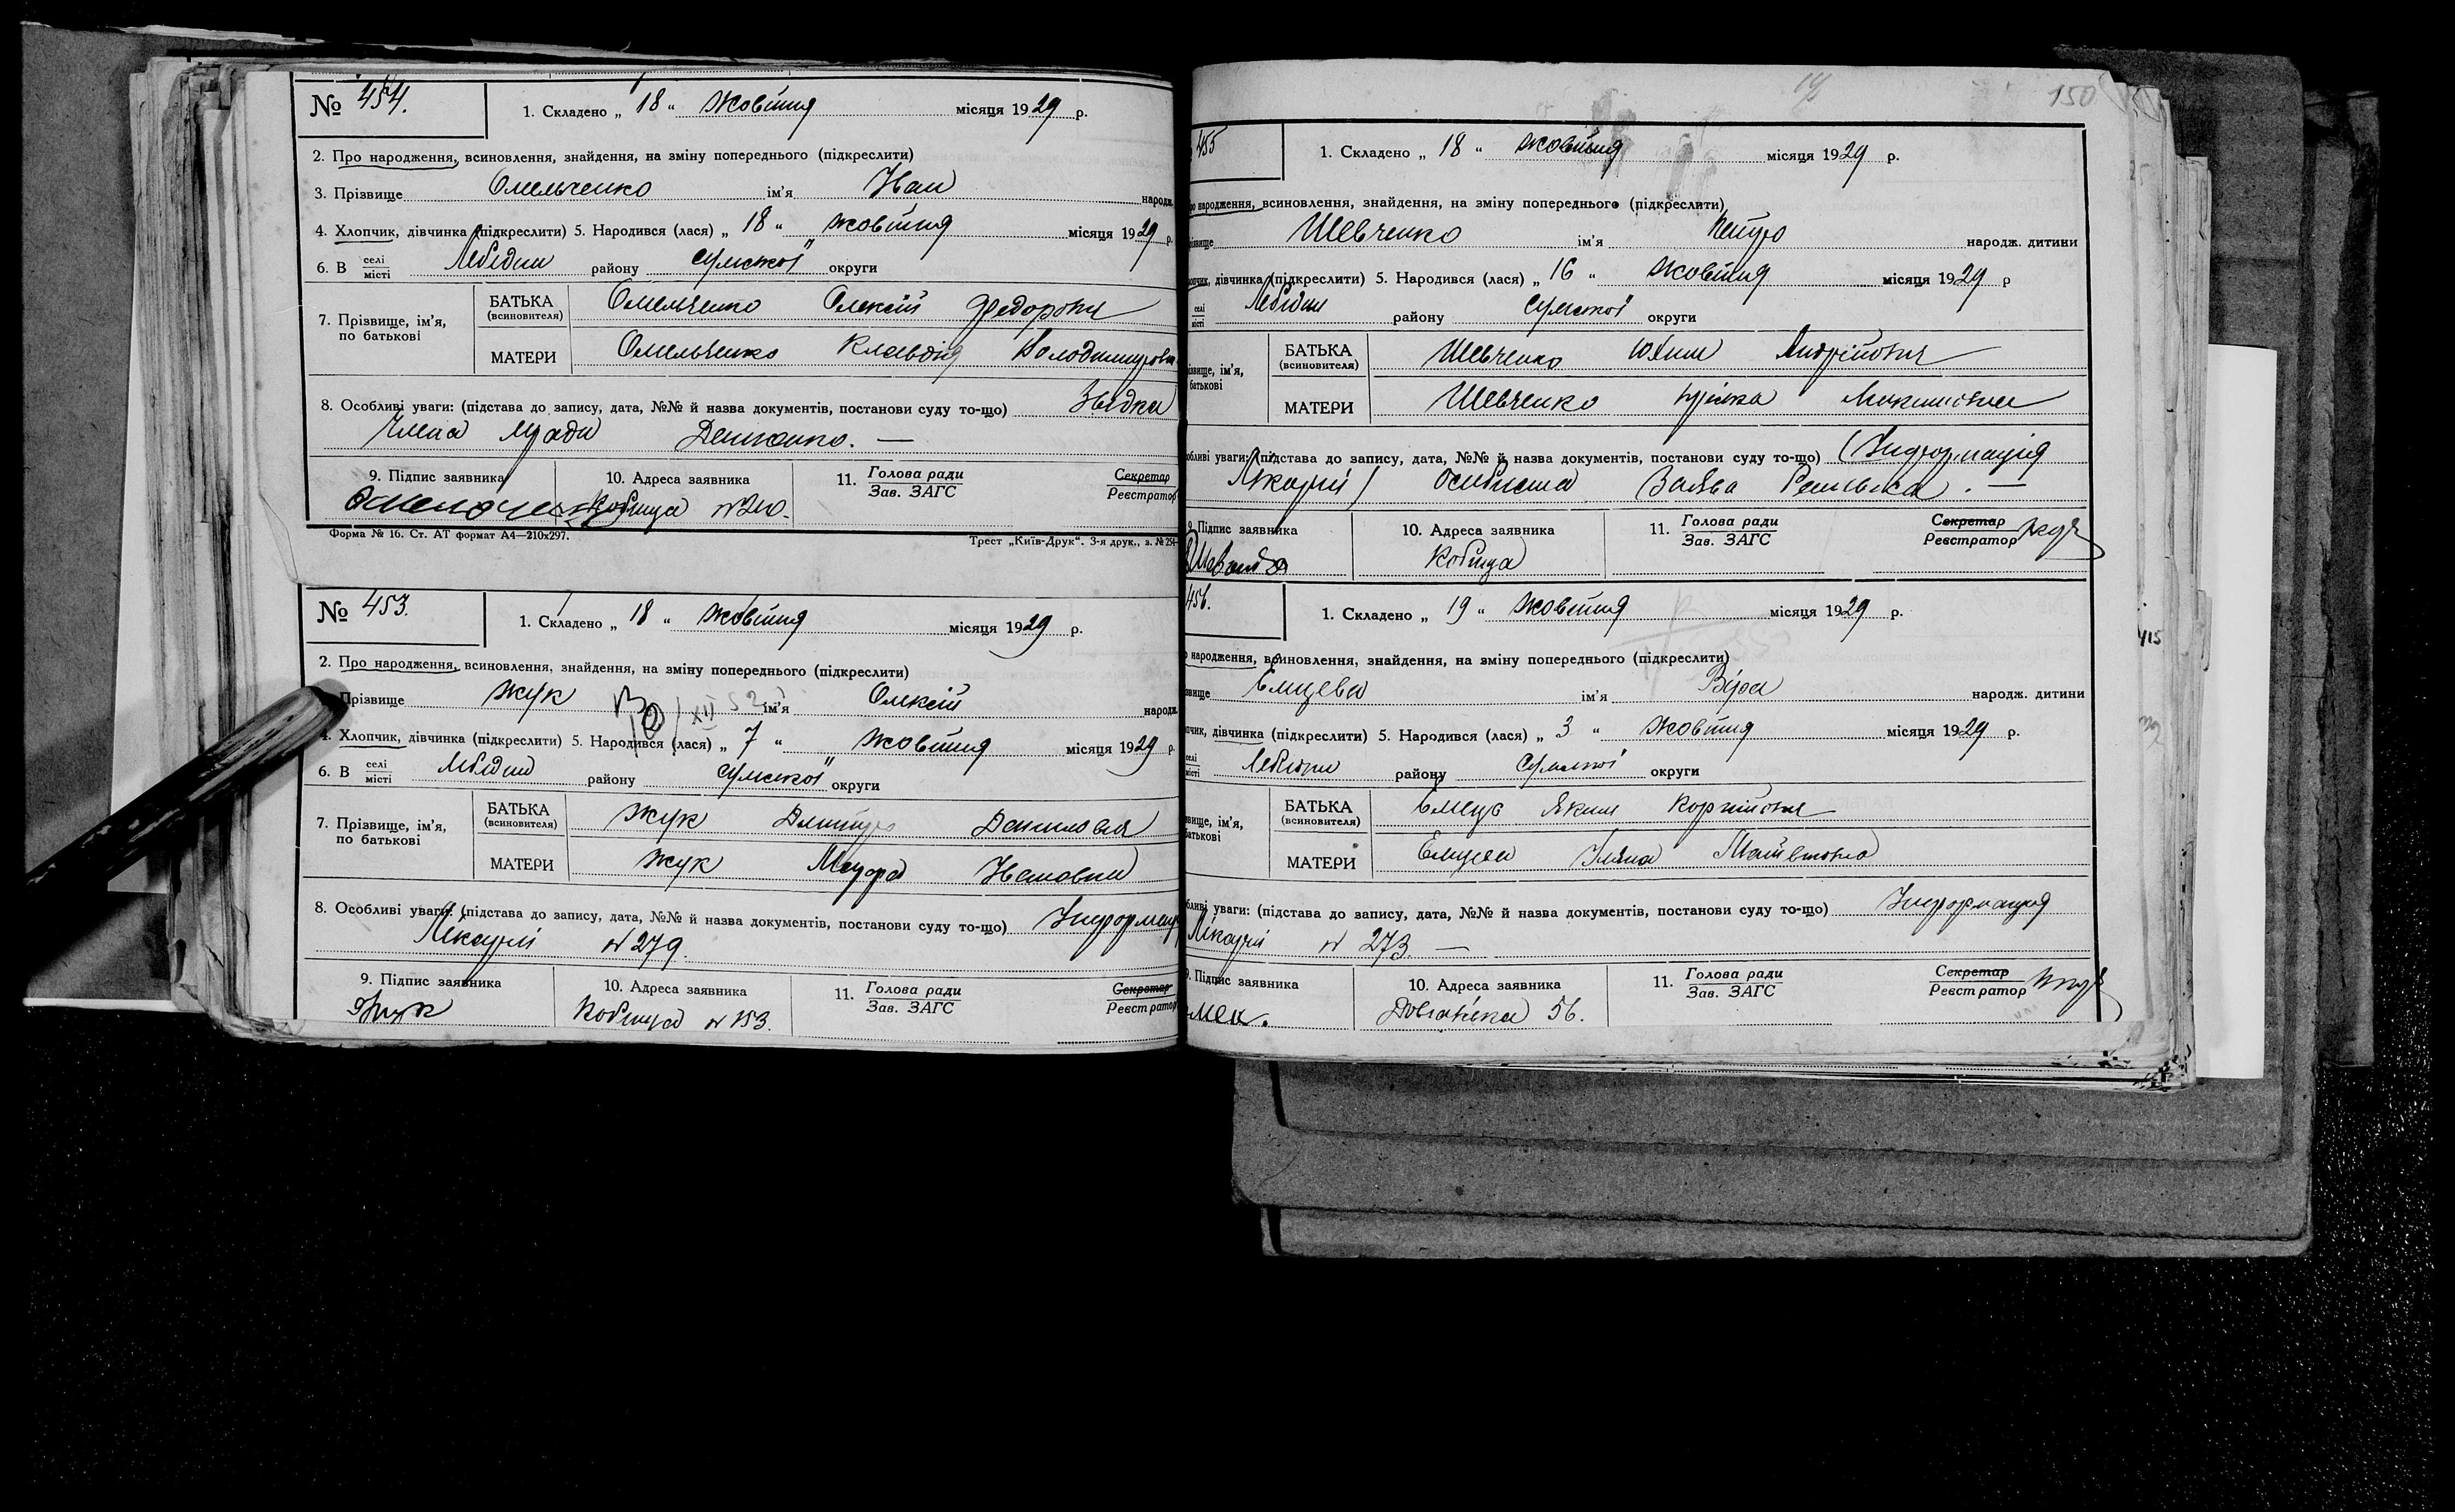 № 454.
1. Складено „ 18 “ жовтня місяця 1929 р.
2. Про народження, всиновлення, знайдення, на зміну попереднього (підкреслити)
3. Прізвище Омельченко ім'я Іван народж.
4. Хлопчик, дівчинка (підкреслити) 5. Народився (лася) „ 18 “ жовтня місяця 1929 р.
6. В селі місті Лебедин району Сумської округи
7. Прізвище, ім'я, по батькові
БАТЬКА (всиновителя) Омельченко Олексій Федорович
МАТЕРИ Омельченко Клавдія Володимировна
8. Особливі уваги: (підстава до запису, дата, №№ й назва документів, постанови суду то-що) Звідка
9. Підпис заявника
10. Адреса заявника
11. Голова ради Зав. ЗАГС
Секретар Реєстратор
Форма № 16. Ст. АТ формат А4—210х297.
Трест „Київ-Друк“. 3-я друк., з. № 254
№ 453.
1. Складено „ 18 “ жовтня місяця 1929 р.
2. Про народження, всиновлення, знайдення, на зміну попереднього (підкреслити)
Прізвище Жук ім'я Олексій народж.
4. Хлопчик, дівчинка (підкреслити) 5. Народився (лася) „ 7 “ жовтня місяця 1929 р.
6. В селі місті Лебедин району Сумської округи
7. Прізвище, ім'я, по батькові
БАТЬКА (всиновителя) Жук Дмитро Данилович
МАТЕРИ Жук Ивановна
8. Особливі уваги: (підстава до запису, дата, №№ й назва документів, постанови суду то-що) Інформац
Лікарні № 279.
9. Підпис заявника Жук
10. Адреса заявника Кобища № 153.
11. Голова ради Зав. ЗАГС
Секретар Реєстратор
150
455
1. Складено „ 18 “ жовтня місяця 1929 р.
ро народження, всиновлення, знайдення, на зміну попереднього (підкреслити)
ізвище Шевченко ім'я Петро народж. дитини
опчик, дівчинка (підкреслити) 5. Народився (лася) „ 16 “ жовтня місяця 1929 р
селі місті Лебедин району Сумської округи
ізвище, ім'я, батькові
БАТЬКА (всиновителя) Шевченко Юхим Андрійович
МАТЕРИ Шевченко
обливі уваги: (підстава до запису, дата, №№ й назва документів, постанови суду то-що) (Інформація
Лікарні) Особиста Заява
9. Підпис заявника
10. Адреса заявника Кобища
11. Голова ради Зав. ЗАГС
Секретар Реєстратор
456.
1. Складено „ 19 “ жовтня місяця 1929 р.
о народження, всиновлення, знайдення, на зміну попереднього (підкреслити)
звище Емцева ім'я Віра народж. дитини
пчик, дівчинка (підкреслити) 5. Народився (лася) „ 3 “ жовтня місяця 1929 р.
селі місті Лебедин району Сумської округи
звище, ім'я, батькові
БАТЬКА (всиновителя) Емець Яким Корнійович
МАТЕРИ Емцева Уляна Матвіювна
бливі уваги: (підстава до запису, дата, №№ й назва документів, постанови суду то-що) Інформація
Лікарні № 273. —
9. Підпис заявника
10. Адреса заявника 56.
11. Голова ради Зав. ЗАГС
Секретар Реєстратор